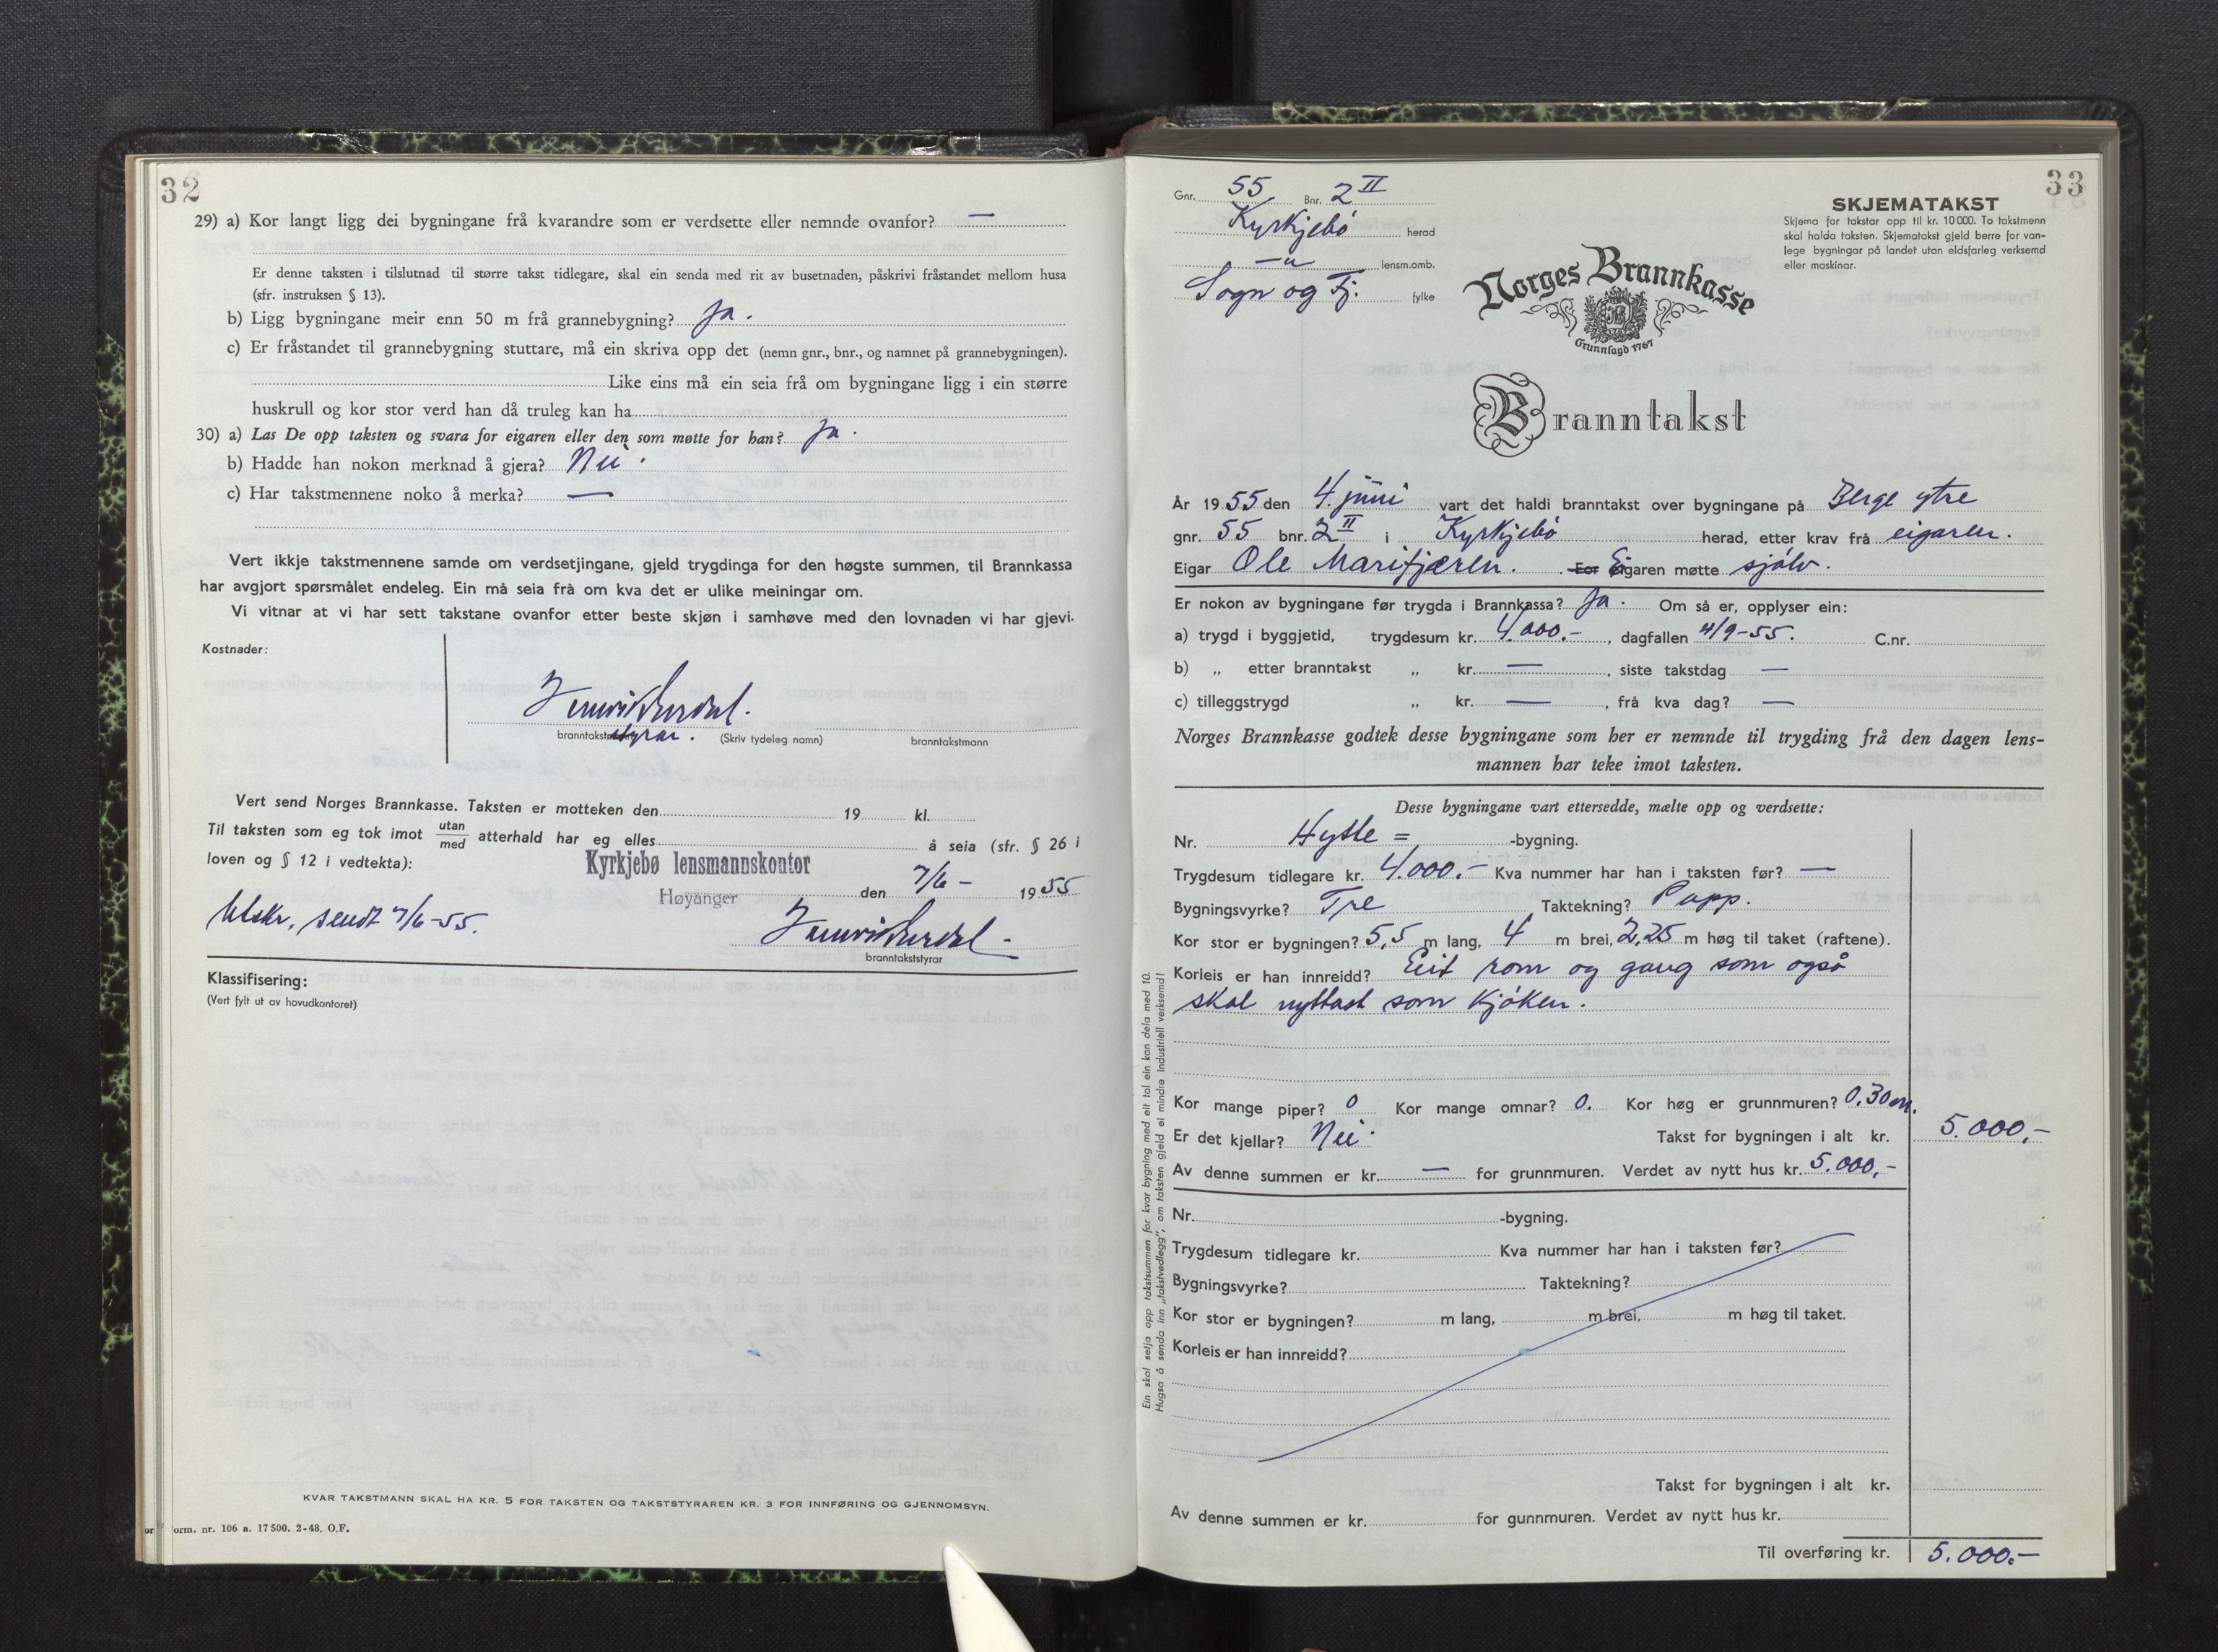 32
29) a) Kor langt ligg dei bygningane frå kvarandre som er verdsette eller nemnde ovanfor? —
Er denne taksten i tilslutnad til større takst tidlegare, skal ein senda med rit av busetnaden, påskrivi fråstandet mellom husa
(sfr. instruksen § 13).
b) Ligg bygningane meir enn 50 m frå grannebygning? Ja.
c) Er fråstandet til grannebygning stuttare, må ein skriva opp det (nemn gnr., bnr., og namnet på grannebygningen).
Like eins må ein seia frå om bygningane ligg i ein større
huskrull og kor stor verd han då truleg kan ha
30) a) Las De opp taksten og svara for eigaren eller den som møtte for han? Ja.
b) Hadde han nokon merknad å gjera? Nei.
c) Har takstmennene noko å merka? —
Vert ikkje takstmennene samde om verdsetjingane, gjeld trygdinga for den høgste summen, til Brannkassa
har avgjort spørsmålet endeleg. Ein må seia frà om kva det er ulike meiningar om.
Vi vitnar at vi har sett takstane ovanfor etter beste skjøn i samhøve med den lovnaden vi har gjevi.
Kostnader:
styrar.
(Skriv tydeleg namn) branntakstmann
Vert send Norges Brannkasse. Taksten er motteken den 19 kl.
Til taksten som eg tok imot utan/med atterhald har eg elles å seia (sfr. § 26 i
loven og § 12 i vedtekta):
Kyrkjebø lensmannskontor
Høyanger den 7/6 - 1955
Utskr. sendt 7/6-55.
branntakststyrar
Klassifisering:
(Vert fylt ut av hovudkontoret)
KVAR TAKSTMANN SKAL HA KR. 5 FOR TAKSTEN OG TAKSTSTYRAREN KR. 3 FOR INNFØRING OG GJENNOMSYN.
orm. nr. 106 a. 17 500. 2-48. O.F.
33
Gnr. 55 Bnr. 2 II
Kyrkjebø herad
—"— lensm.omb.
Sogn og Fj. fylke
SKJEMATAKST
Skjema for takstar opp til kr. 10 000. To takstmenn
skal halda taksten. Skjematakst gjeld berre for van-
lege bygningar på landet utan eldsfarleg verksemd
eller maskinar.
Norges Brannkasse
Grunnlagd 1767
Branntakst
År 1955 den 4. juni vart det haldi branntakst over bygningane på Berge ytre
gnr. 55 bnr. 2 II i Kyrkjebø herad, etter krav frå eigaren.
Eigar Ole Marifjæren. For Eigaren møtte sjølv.
Er nokon av bygningane før trygda i Brannkassa? Ja. Om så er, opplyser ein:
a) trygd i byggjetid, trygdesum kr. 4.000.- , dagfallen 4/9-55. C.nr.
b) „ etter branntakst „ kr. — , siste takstdag —
c) tilleggstrygd „ kr. — , frå kva dag? —
Norges Brannkasse godtek desse bygningane som her er nemnde til trygding frå den dagen lens-
mannen har teke imot taksten.
Desse bygningane vart ettersedde, mælte opp og verdsette:
Nr. Hytte = -bygning.
Trygdesum tidlegare kr. 4.000.- Kva nummer har han i taksten før? —
Bygningsvyrke? Tre Taktekning? Papp.
Kor stor er bygningen? 5,5 m lang, 4 m brei, 2,25 m høg til taket (raftene).
Korleis er han innreidd? Eit rom og gang som også
skal nyttast som kjøken.
Kor mange piper? 0 Kor mange omnar? 0. Kor høg er grunnmuren? 0.30 m.
Er det kjellar? Nei. Takst for bygningen i alt kr. 5.000,-
Av denne summen er kr. — for grunnmuren. Verdet av nytt hus kr. 5.000,-
Nr. -bygning.
Trygdesum tidlegare kr. Kva nummer har han i taksten før?
Bygningsvyrke? Taktekning?
Kor stor er bygningen? m lang, m brei, m høg til taket.
Korleis er han innreidd?
Takst for bygningen i alt kr.
Av denne summen er kr. for gunnmuren. Verdet av nytt hus kr.
Til overføring kr. 5.000.-
Ein skal setja opp takstsummen for kvar bygning med eit tal ein kan dela med 10.
Hugsa å senda inn „takstvedlegg", om taksten gjeld ei mindre industriell verksemd!